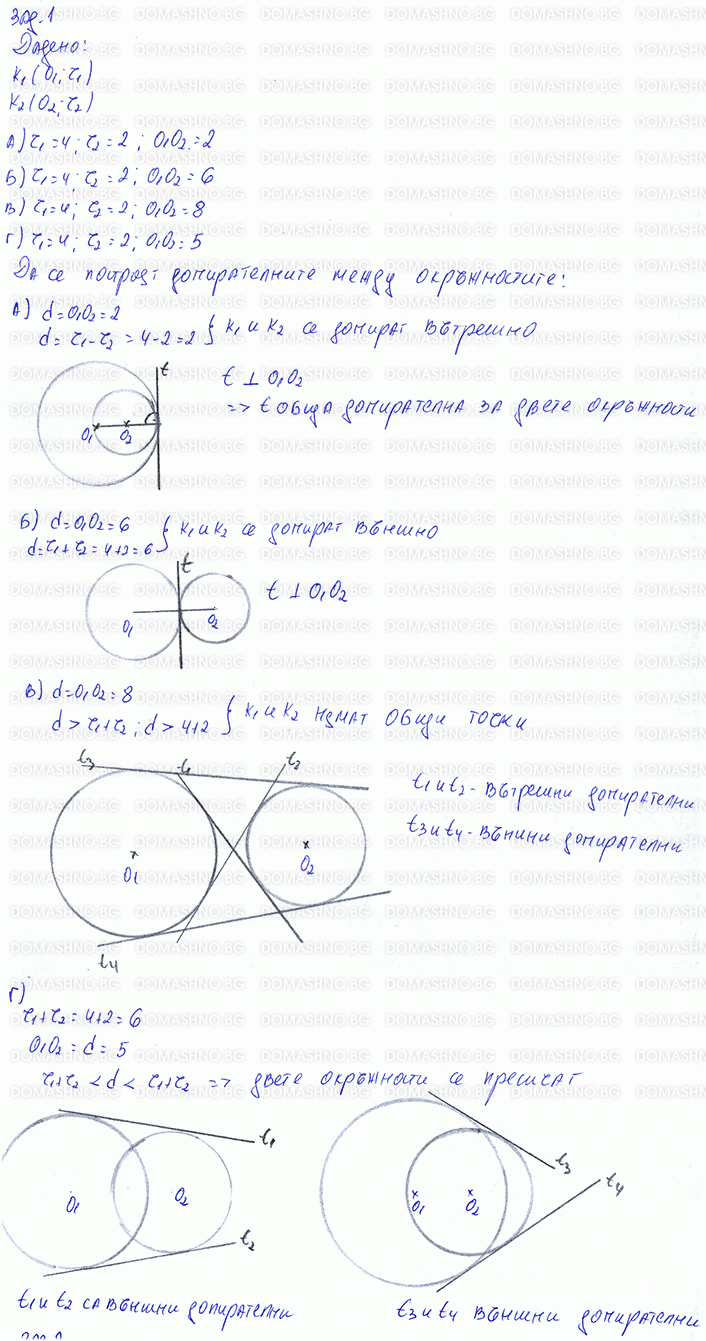 Зад. 1
Дадено:
k₁(O₁; r₁)
k₂(O₂; r₂)
А) r₁ = 4; r₂ = 2; O₁O₂ = 2
Б) r₁ = 4; r₂ = 2; O₁O₂ = 6
В) r₁ = 4; r₂ = 2; O₁O₂ = 8
Г) r₁ = 4; r₂ = 2; O₁O₂ = 5
Да се построят допирателните между окръжностите:
А) d = O₁O₂ = 2
d = r₁ - r₂ = 4 - 2 = 2 } k₁ и k₂ се допират вътрешно
t
t ⊥ O₁O₂
=> t обща допирателна за двете окръжности
O₁ O₂
Б) d = O₁O₂ = 6
d = r₁ + r₂ = 4 + 2 = 6 } k₁ и k₂ се допират външно
t
t ⊥ O₁O₂
O₁ O₂
В) d = O₁O₂ = 8
d > r₁ + r₂; d > 4 + 2 } k₁ и k₂ нямат общи точки
t₃ t₁ t₂
t₁ и t₂ - вътрешни допирателни
t₃ и t₄ - външни допирателни
O₁ O₂
t₄
Г)
r₁ + r₂ = 4 + 2 = 6
O₁O₂ = d = 5
r₁ + r₂ < d < r₁ + r₂ => двете окръжности се пресичат
t₁
t₃
t₄
O₁ O₂
O₁ O₂
t₂
t₁ и t₂ са външни допирателни
t₃ и t₄ външни допирателни
DOMASHNO.BG